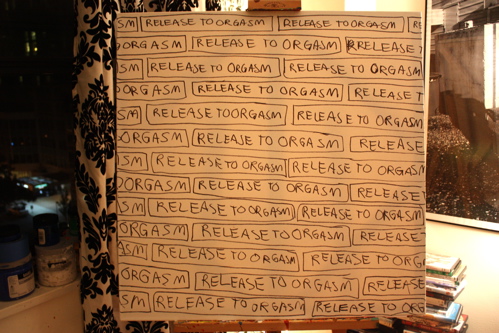 SM RELEASE TO ORGASM RELEASE TO ORGASM RE
ORGASM RELEASE TO ORGASM RRELEASE T
SM RELEASE TO ORGASM RELEASE TO ORGASM
ORGASM RELEASE TO ORGASM RELEASE T
SM RELEASE TO ORGASM RELEASE TO ORGASM
ORGASM RELEASE TO ORGASM RELEASE
SM RELEASE TO ORGASM RELEASE TO ORGASM
ORGASM RELEASE TO ORGASM RELEASE
SM RELEASE TO ORGASM RELEASE TO ORGASM
ORGASM RELEASE TO ORGASM RELEASE
ASM RELEASE TO ORGASM RELEASE TO ORGASM
ORGASM RELEASE TO ORGASM RELEASE
SM RELEASE TO ORGASM RELEASE TO ORG